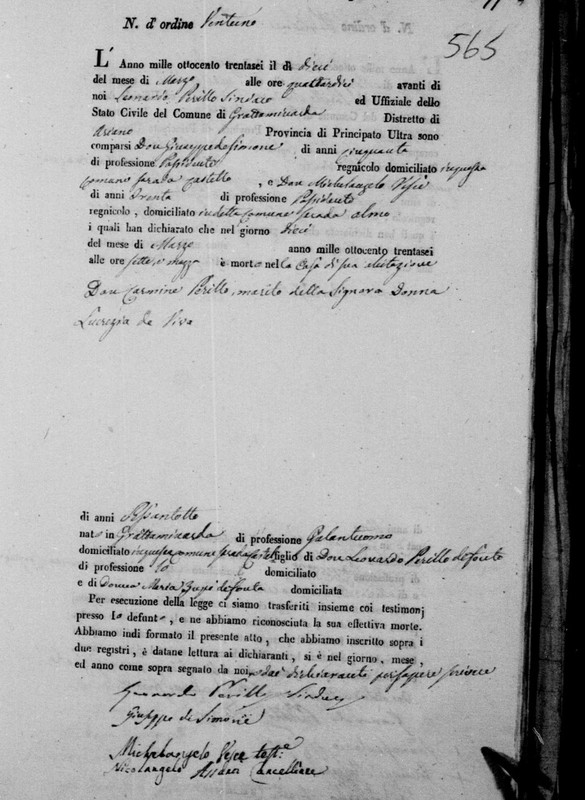 N. d'ordine Ventuno
565
L'Anno mille ottocento trentasei il dì dieci
del mese di Marzo alle ore quattordici avanti di
noi Leonardo Perillo Sindaco ed Uffiziale dello
Stato Civile del Comune di Grottaminarda Distretto di
Ariano Provincia di Principato Ultra sono
comparsi Don Giuseppe de Simone di anni cinquanta
di professione Possidente regnicolo domiciliato in questa
Comune strada Castello, e Don Michelangelo Pesce
di anni trenta di professione Possidente
regnicolo, domiciliato in detta Comune strada
i quali han dichiarato che nel giorno dieci
del mese di Marzo anno mille ottocento trentasei
alle ore sette e mezza è morto nella Casa di sua abitazione
Don Carmine Perillo, marito della Signora Donna
Lucrezia de Vivo
di anni Sessantotto
nato in Grottaminarda di professione Galantuomo
domiciliato in questa Comune strada Castello figlio di Don Leonardo Perillo defonto
di professione domiciliato
e di Donna Maria defonta domiciliata
Per esecuzione della legge ci siamo trasferiti insieme coi testimonj
presso lo defunto, e ne abbiamo riconosciuta la sua effettiva morte.
Abbiamo indi formato il presente atto, che abbiamo inscritto sopra i
due registri, è datane lettura ai dichiaranti, si è nel giorno, mese,
ed anno come sopra segnato da noi, dai dichiaranti per sapere scrivere
Leonardo Perillo Sindaco
Giuseppe de Simone
Michelangelo Pesce test.e
Nicolangelo Cancelliere